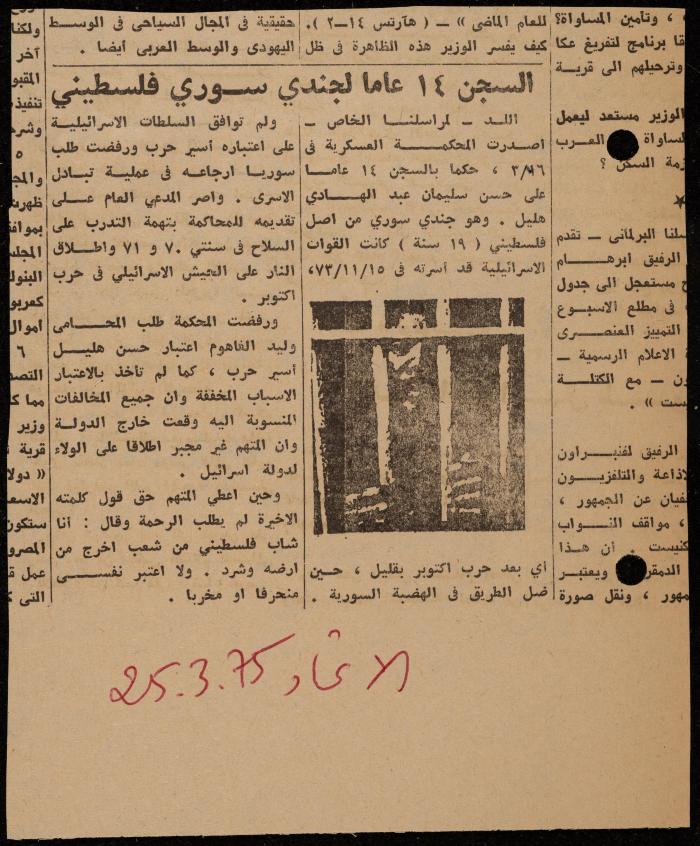 ، وتأمين المساواة؟
قا برنامج لتفريغ عكا
وترحيلهم الى قرية
الوزير مستعد ليعمل
لمساواة العرب
زمة السكن ؟
سلنا البرلمانى — تقدم
الرفيق ابرهام
ح مستعجل الى جدول
فى مطلع الاسبوع
التمييز العنصرى
الاعلام الرسمية —
ون — مع الكتلة
ست » .
المرفيق لفنبراون
لاذاعة والتلفزيون
فيان عن الجمهور ،
، مواقف النواب
كنيست . أن هذا
الدمقر ويعتبر
مهور ، ونقل صورة
للعام الماضى » — ( هآرتس ١٤—٢ ) .
كيف يفسر الوزير هذه الظاهرة فى ظل
حقيقية فى المجال السياحى فى الوسط
اليهودى والوسط العربى أيضا .
السجن ١٤ عاما لجندي سوري فلسطيني
اللد — لمراسلنا الخاص —
اصدرت المحكمة العسكرية فى
٣/١٦ ، حكما بالسجن ١٤ عاما
على حسن سليمان عبد الهادي
هليل . وهو جندي سوري من اصل
فلسطيني ( ١٩ سنة ) كانت القوات
الاسرائيلية قد أسرته فى ٧٣/١١/١٥،
أي بعد حرب اكتوبر بقليل ، حين
ضل الطريق فى الهضبة السورية .
ولم توافق السلطات الاسرائيلية
على اعتباره أسير حرب ورفضت طلب
سوريا ارجاعه فى عملية تبادل
الاسرى . واصر المدعي العام على
تقديمه للمحاكمة بتهمة التدرب على
السلاح فى سنتي ٧٠ و ٧١ واطلاق
النار على الجيش الاسرائيلي فى حرب
اكتوبر .
ورفضت المحكمة طلب المحامى
وليد الفاهوم اعتبار حسن هليل
أسير حرب ، كما لم تأخذ بالاعتبار
الاسباب المخففة وان جميع المخالفات
المنسوبة اليه وقعت خارج الدولة
وان المتهم غير مجبر اطلاقا على الولاء
لدولة اسرائيل .
وحين اعطي المتهم حق قول كلمته
الاخيرة لم يطلب الرحمة وقال : أنا
شاب فلسطيني من شعب اخرج من
ارضه وشرد . ولا اعتبر نفسى
منحرفا او مخربا .
ولكنا
آخر
المقبو
تنفيذ
وشره
٥
والمج
ظهرت
بموافق
المجلس
البنوك
كعربو
أموال
٦
التصد
مما ك
وزير
قرية
« دولا
الاسعا
ستكون
المصرو
عمل ق
التى
الاتحاد 25.3.75